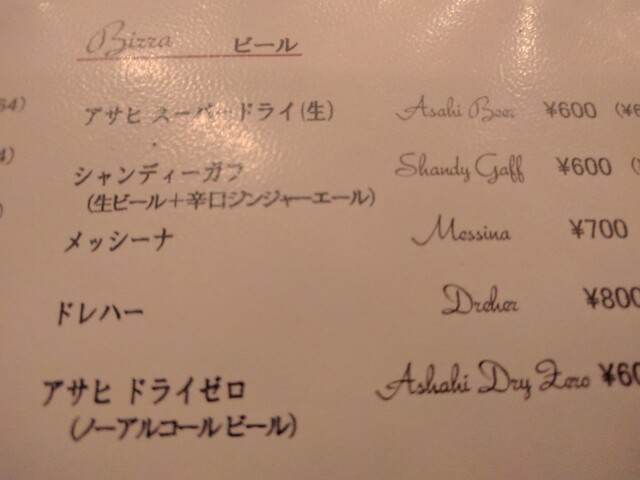 Bizza ビール
アサヒ スーパードライ(生) Asahi Beer ¥600 (¥6
シャンディーガフ Shandy Gaff ¥600 (
(生ビール＋辛口ジンジャーエール)
メッシーナ Messina ¥700
ドレハー Dreher ¥800
アサヒ ドライゼロ Ashahi Dry Zero ¥60
(ノーアルコールビール)
64)
4)
)